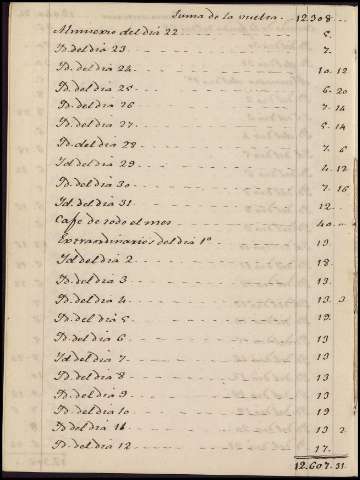 Suma de la vuelta . 12.308 ..
Almuerzo del dia 22 8.
Id. del dia 23 7.
Id. del dia 24 10. 12
Id. del dia 25 6. 20
Id. del dia 26 7. 14
Id. del dia 27 5. 14
Id. del dia 28 7. 6
Id. del dia 29 4. 12
Id. del dia 30 7. 16
Id. del dia 31 12.
Cafe de todo el mes 40
Extraordinarios del dia 1º 19.
Id. del dia 2 18.
Id. del dia 3 13.
Id. del dia 4 13. 3
Id. del dia 5 19.
Id. del dia 6 13
Id. del dia 7 13
Id. del dia 8 13
Id. del dia 9 13
Id. del dia 10 19
Id. del dia 11 13 2
Id. del dia 12 17.
12.607. 31